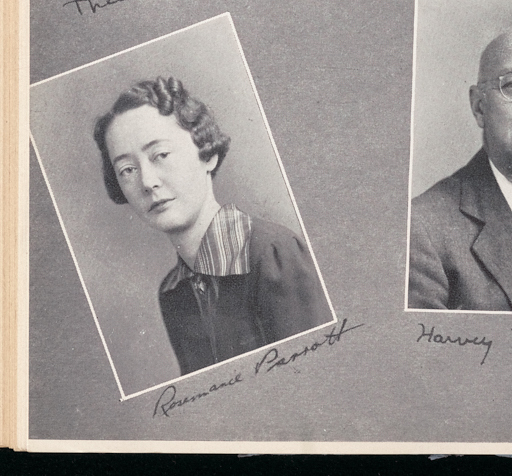 The
Rosemarie Parrott
Harvey